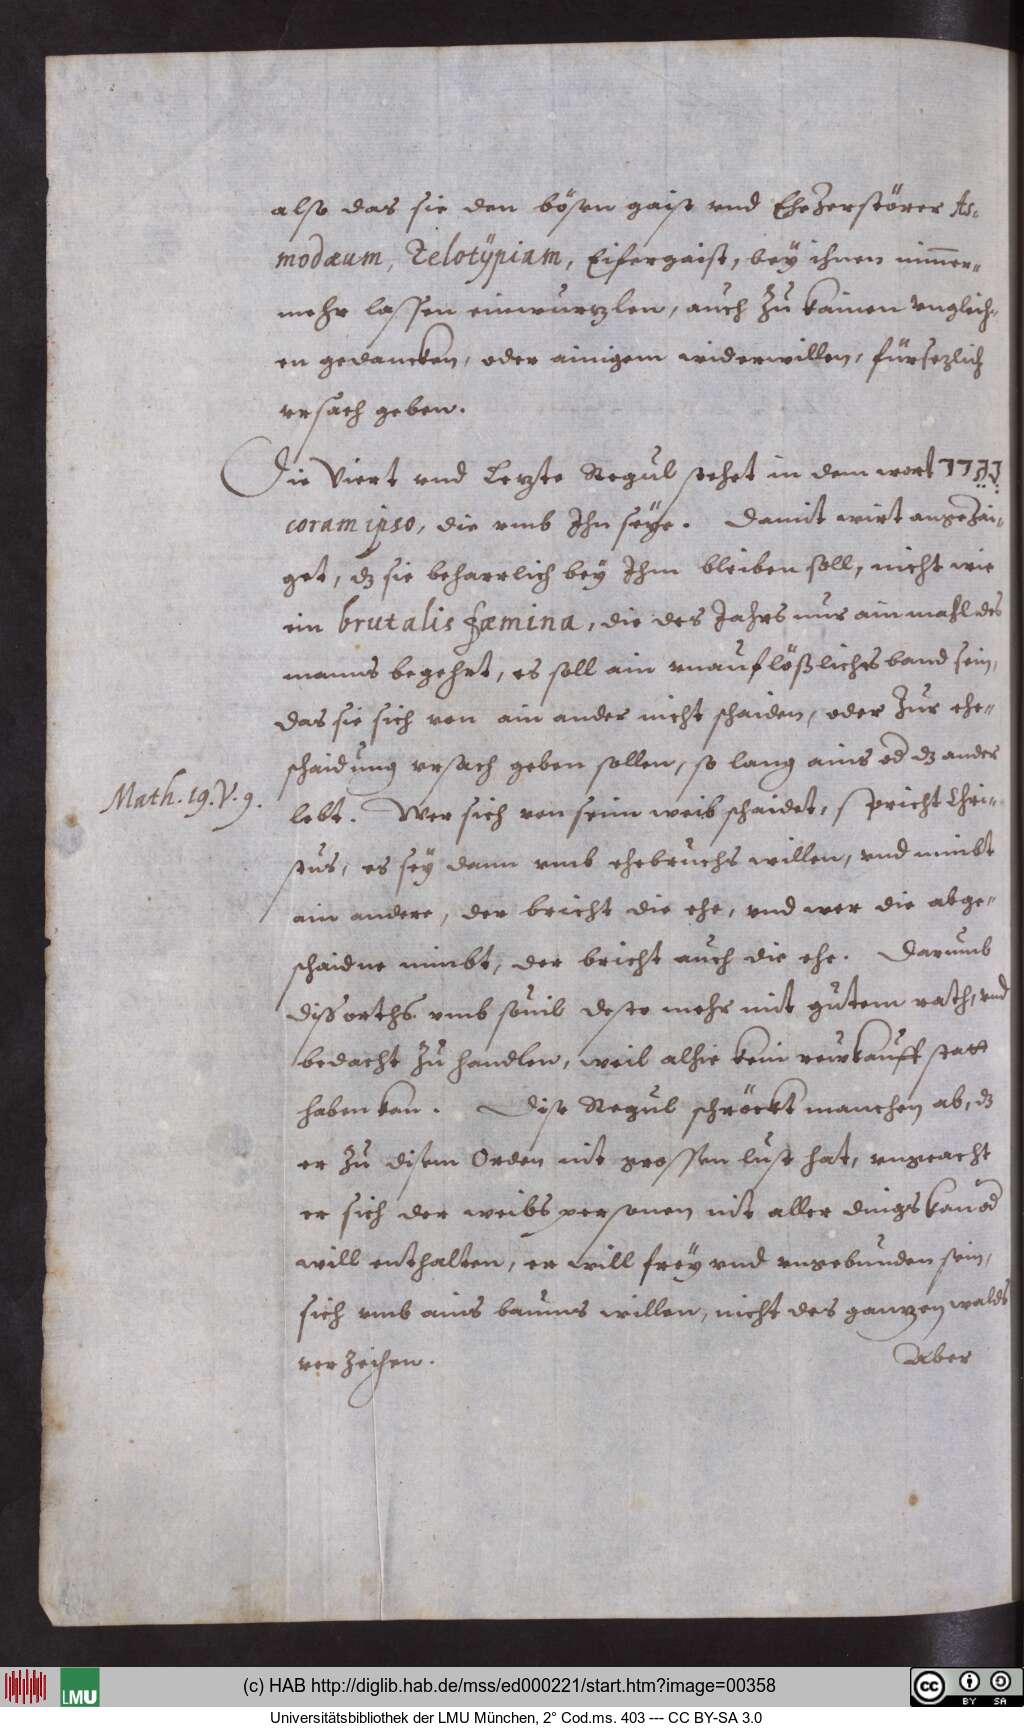 also das sie den bösen gaist vnd Ehezerstörer As-
modæum, Zelotÿpiam, Eifergaist, beÿ ihnen nim̅er-
mehr lassen einwurtzlen, auch zu kainen vngleich-
en gedancken, oder ainigem widerwillen, fürsezlich
vrsach geben.
Die Viert vnd Letzte Regul stehet in dem wort
coram ipso, die vmb Ihn seÿe. Damit wirt angezai-
get, dz sie beharrlich beÿ Ihm bleiben soll, nicht wie
ein brutalis fæmina, die des Jahrs nur ain mahl des
manns begehrt, es soll ain vnauflößliches band sein,
das sie sich von ain ander nicht schaiden, oder zur ehe-
schaidung vrsach geben sollen, so lang ains od dz ander
Math. 19. V. 9.
lebt. Wer sich von seim weib schaidet, spricht Chri-
stus, es seÿ dann vmb ehebruchs willen, vnd nimbt
ain andere, der bricht die ehe, vnd wer die abge-
schaidne nimbt, der bricht auch die ehe. Darumb
diss orths vmb souil desto mehr mit gutem rath, vnd
bedacht zu handlen, weil alhie kein rewkauff statt
haben kan. Dise Regul schröckt manchen ab, dz
er zu disem Orden nit grossen lust hat, vngeacht
er sich der weibs personen nit aller dings kan od
will enthalten, er will freÿ vnd vngebunden sein,
sich vmb ains baums willen, nicht des gantzen walds
verzeihen.
Aber
(c) HAB http://diglib.hab.de/mss/ed000221/start.htm?image=00358
LMU
cc BY SA
Universitätsbibliothek der LMU München, 2° Cod.ms. 403 --- CC BY-SA 3.0